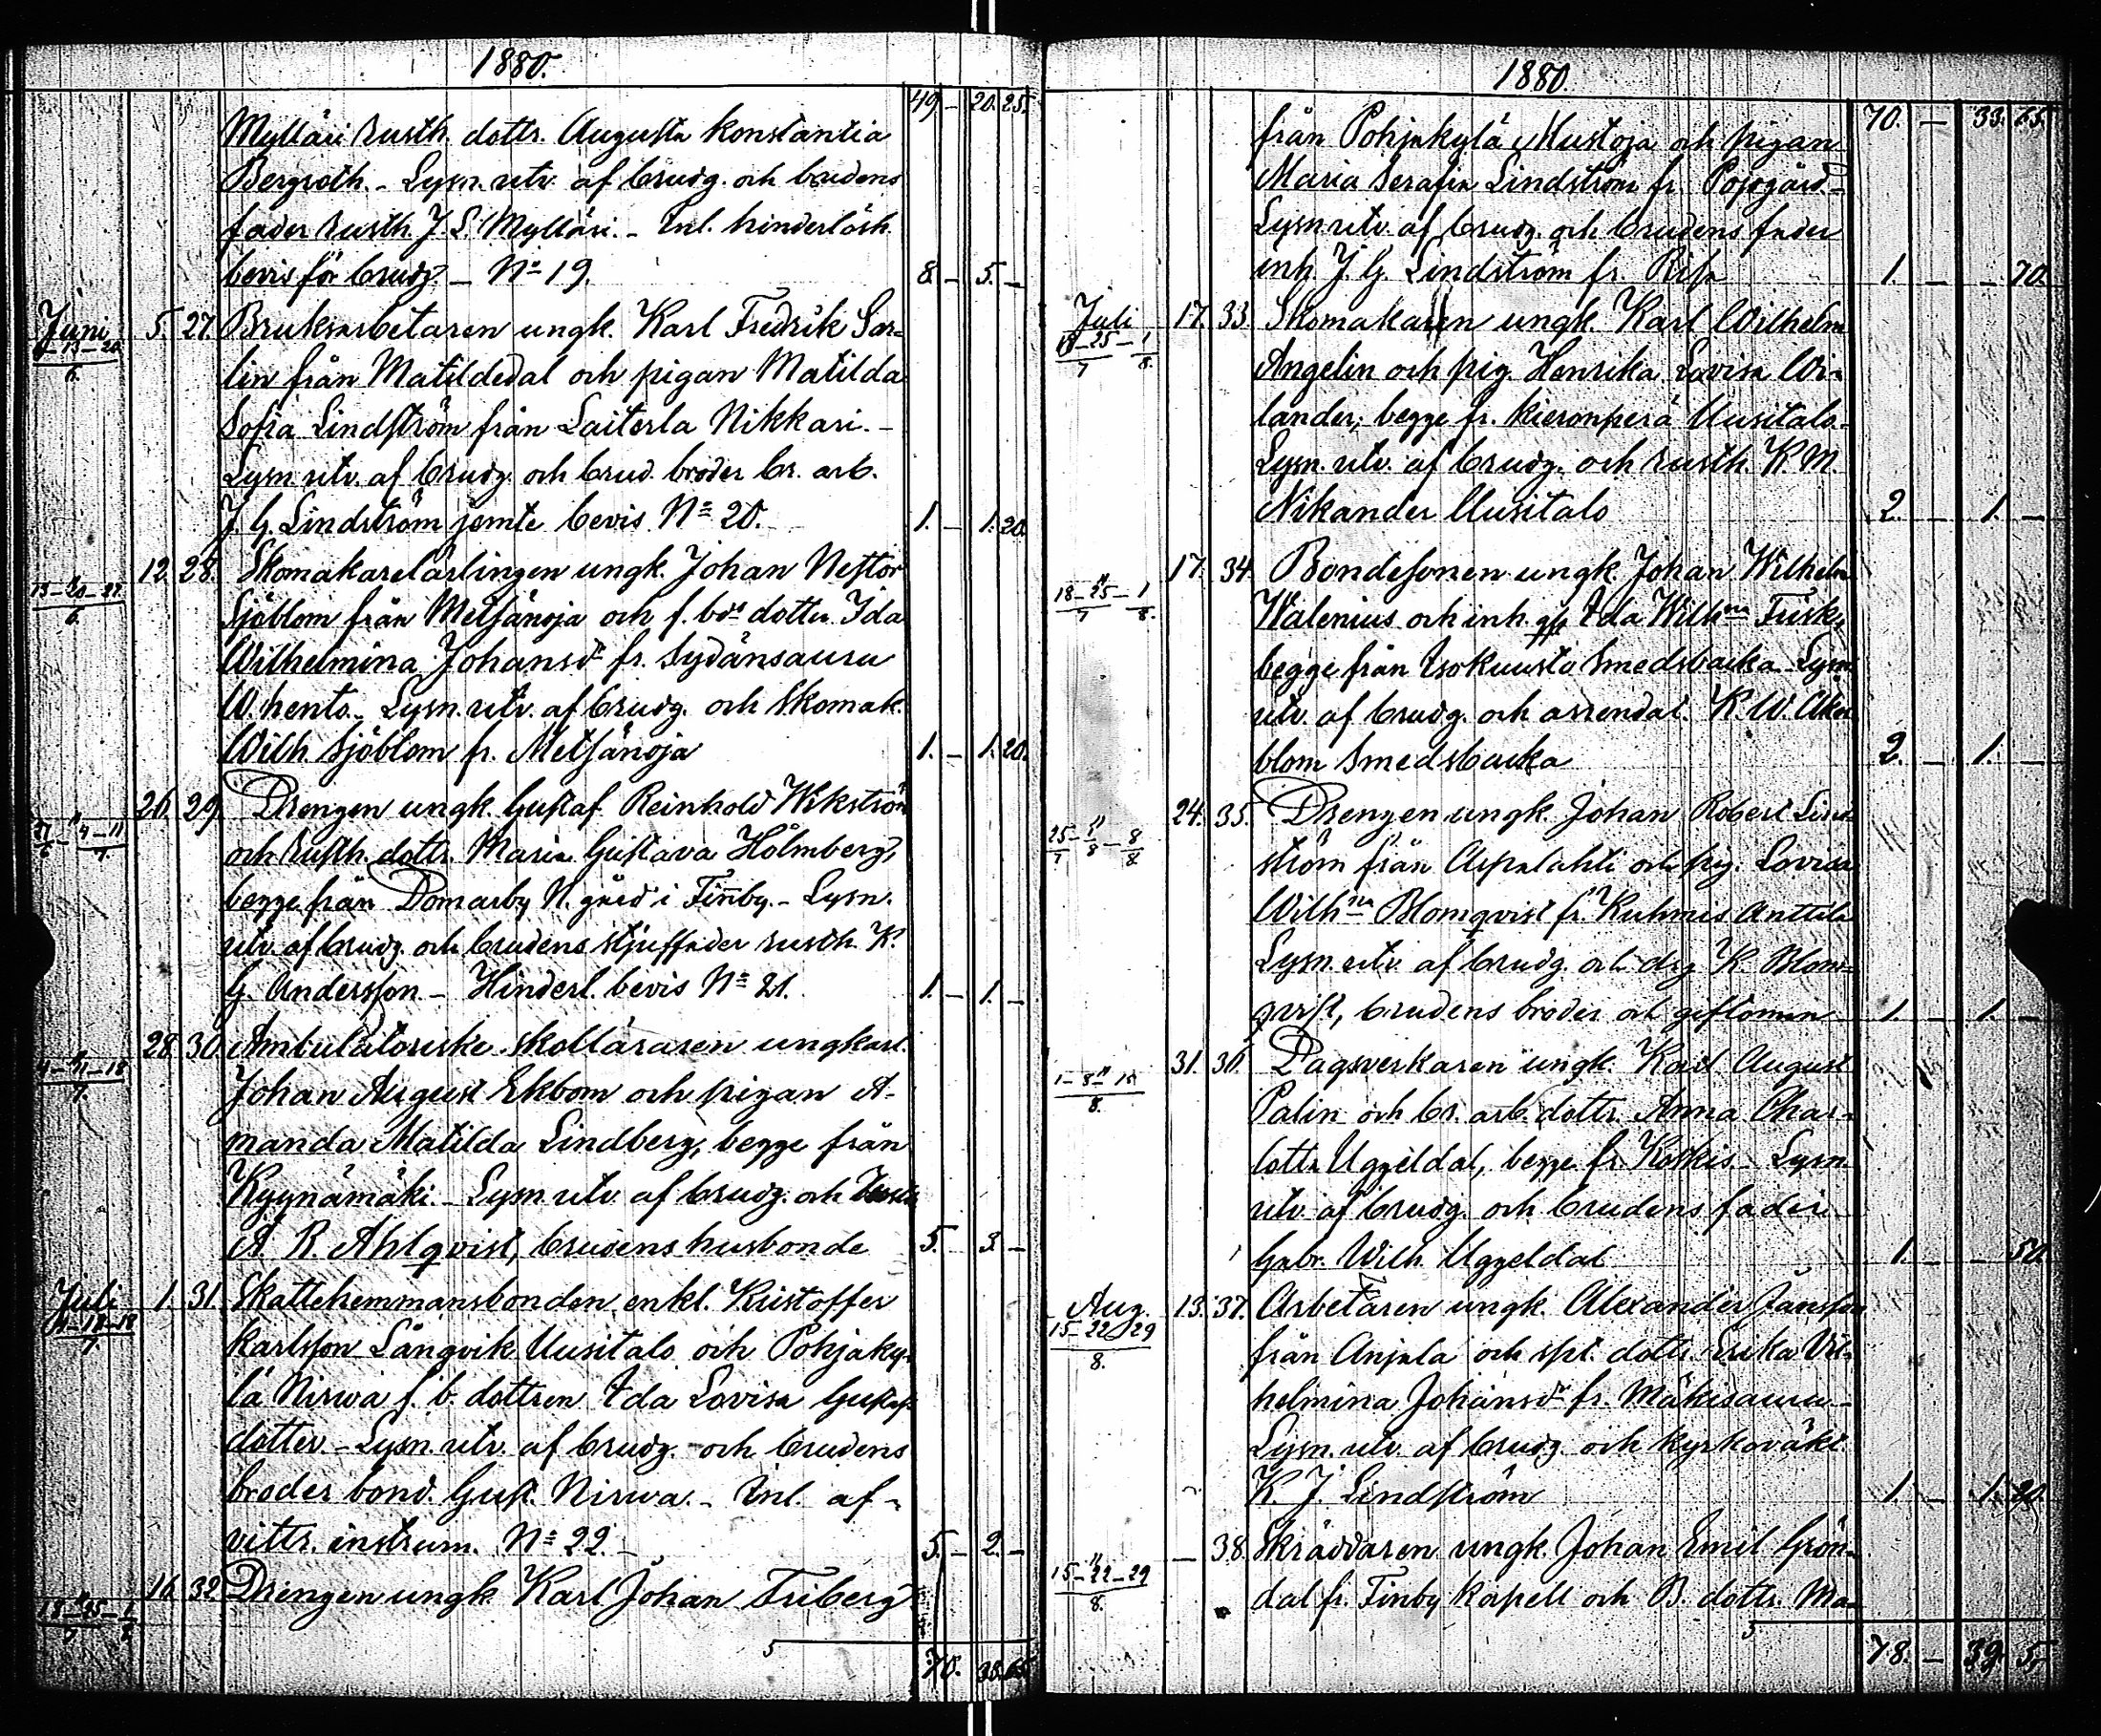 1880.
49 - 20. 25.
Mylläri rusth. dottr. Augusta Konstantia
Bergroth. - Lysn. utv. af brudg. och brudens
fader rusth. J. L. Mylläri. - Inl. hinderlösh.
bevis för brudg. - No 19. 8 - 5. -
Juni 5. 27. Bruksarbetaren ungk. Karl Fredrik Sar-
6.
lin från Matildedal och pigan Matilda
Sofia Lindström från Laiterla Nikkari. -
Lysn. utv. af brudg. och brud. broder br. arb.
J. G. Lindström jemte bevis No 20. 1. - 1. 20.
12. 28. Skomakarelärlingen ungk. Johan Nestor
13-20-27
6.
Sjöblom från Metsänoja och f. bds dotter Ida
Wilhelmina Johansdr fr. Sydänsauru
W. hento. Lysn. utv. af brudg. och Skomak.
Wilh. Sjöblom fr. Metsänoja 1. - 1. 20.
26. 29. Drengen ungk. Gustaf Reinhold Wikström
27/6 - 4-11/7.
och rusth. dottr. Maria Gustava Holmberg,
begge från Domarby N. gård i Finnby. - Lysn.
utv. af brudg. och brudens stjuffader rusth. K.
G. Andersson - Hinderl. bevis No 21. 1. - 1. -
28. 30. Ambulatoriske skolläraren ungkarl.
4-11-18
7.
Johan August Ekbom och pigan A-
manda Matilda Lindberg, begge från
Kyynämäki - Lysn. utv. af brudg. och
A. R. Ahlqvist, brudens husbonde 5. - 3. -
Juli 1. 31. Skattehemmansbonden enkl. Kristoffer
7.
Karlsson Långvik Uusitalo och Pohjaky-
lä Nirwa f. b. dottren Ida Lovisa Gustafs
dotter. - Lysn. utv. af brudg. och brudens
broder bond. Gust. Nirwa. - Inl. af-
vittr. instrum. No 22. - 5. - 2. -
16. 32. Drengen ungk. Karl Johan Friberg
18-25-1
7 8
70. 33. 65.
1880.
70. - 33. 65.
från Pohjakylä Mustoja och pigan
Maria Serafia Lindström fr. Poppgård. -
Lysn. utv. af brudg. och brudens fader
inh. J. G. Lindström fr. 1. - - 70.
Juli 17. 33. Skomakaren ungk. Karl Wilhelm
18-25-1
7 8.
Angelin och pig. Henrika Lovisa Wi-
lander, begge fr. Kieronperä Uusitalo. -
Lysn. utv. af brudg. och rusth. K. M.
Nikander Uusitalo 2. - 1. -
17. 34. Bondesonen ungk. Johan Wilhelm
18-25-1
7 8.
Walenius och inh. Ida Wilhna Fusk,
begge från Isokuusto Smedsbacka. Lysn.
utv. af brudg. och arrendat. K. W. Åker
blom Smedsbacka 2. - 1. -
24. 35. Drengen ungk. Johan Robert Lind-
25/7 - 1/8 - 8/8
ström från Aspalahti och pig. Lovisa
Wilhna Blomqvist fr. Kuhmis Anttila
Lysn. utv. af brudg. och drg K. Blom-
qvist, brudens broder och giftoman 1. - 1. -
31. 36. Dagsverkaren ungk. Karl August
1-8-15
8.
Palin och br. arb. dottr. Anna Char-
lotta Uggeldal, begge fr. Koskis - Lysn.
utv. af brudg. och brudens fader
Gabr. Wilh. Uggeldal 1. - - 50.
Aug. 13. 37. Arbetaren ungk. Alexander Jansson
15-22-29
8.
från Anjala och spt. dottr. Erika Vil-
helmina Johansdr fr. Mäkisauru -
Lysn. utv. af brudg. och kyrkoväkt.
K. J. Lindström 1. - 1. 20.
- 38. Skräddaren ungk. Johan Emil Grön-
15-22-29
8.
dal fr. Finby kapell och B. dottr. Ma-
78. - 39. 5.